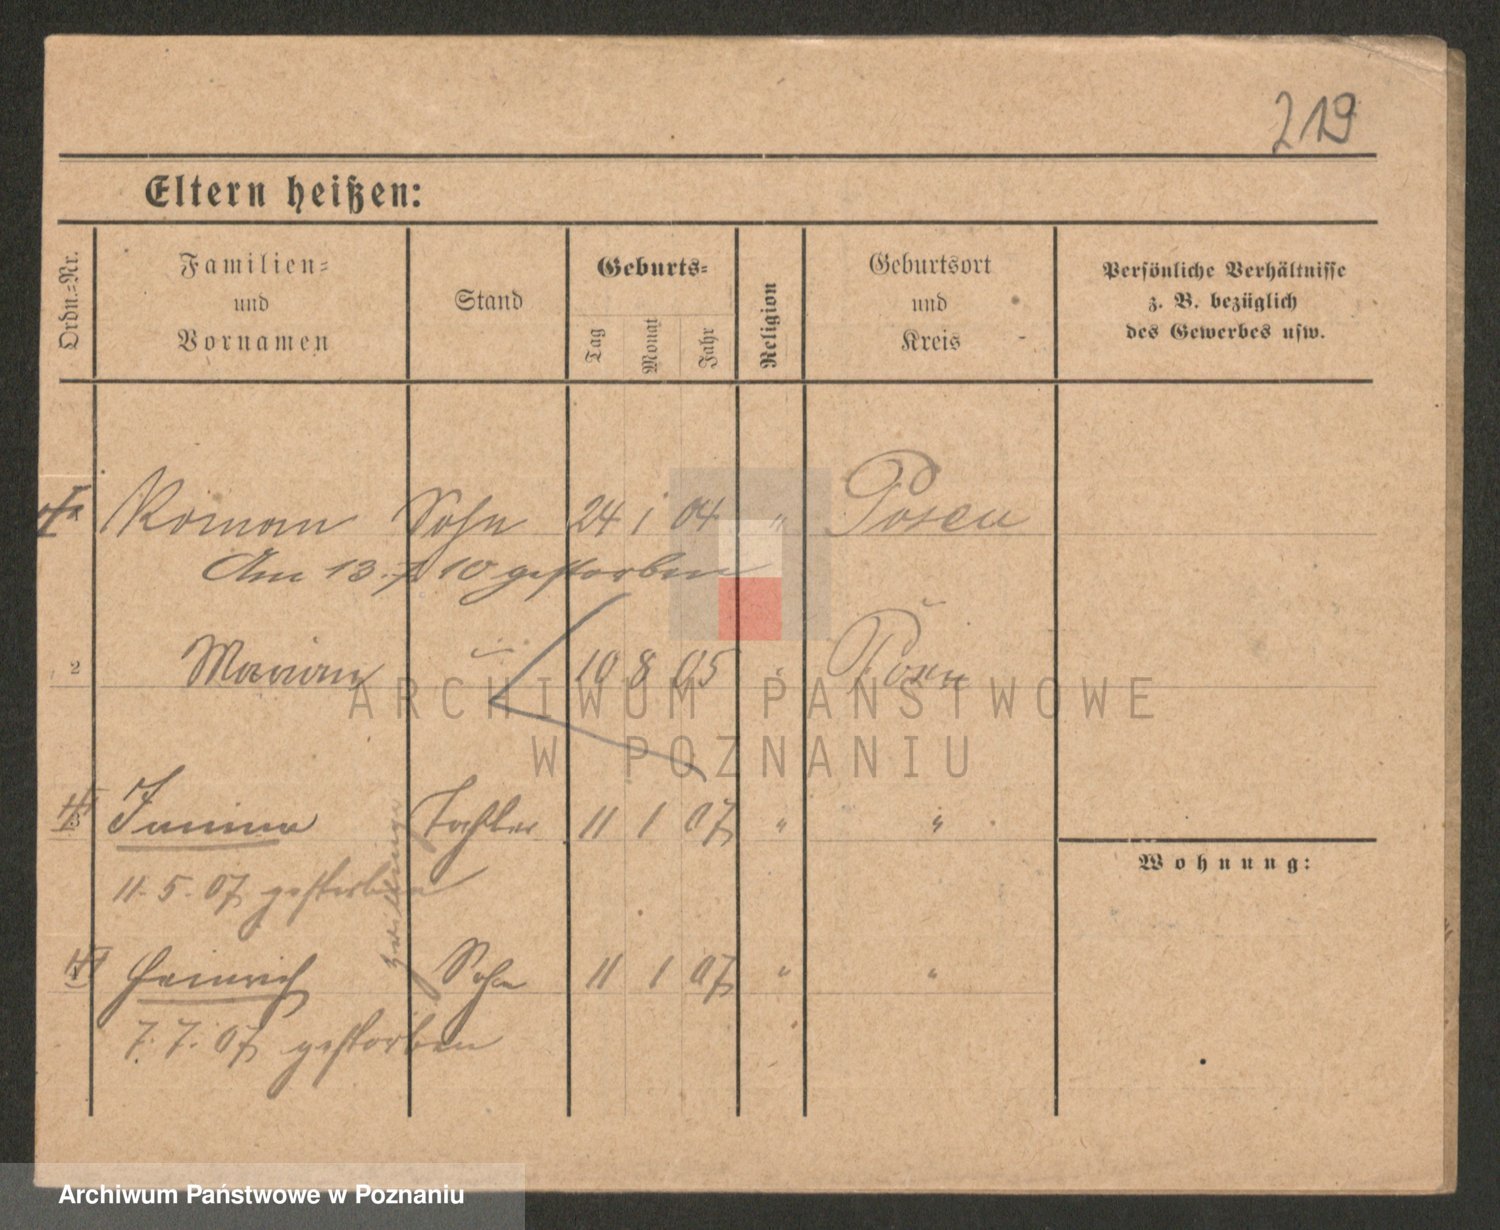 219
Eltern heißen:
Ordn.=Nr.
Familien=
und
Vornamen
Stand
Geburts=
Tag
Monat
Jahr
Religion
Geburtsort
und
Kreis
Persönliche Verhältnisse
z. B. bezüglich
des Gewerbes usw.
Roman Sohn 24 1 04 " Posen
Am 13. 10 gestorben
2 Marian " 10 8 05 " Posen
3 Janina Tochter 11 1 07 " "
11. 5. 07 gestorben
Zwillinge
Heinrich Sohn 11 1 07 " "
7. 7. 07 gestorben
Wohnung:
ARCHIWUM PAŃSTWOWE
W POZNANIU
Archiwum Państwowe w Poznaniu